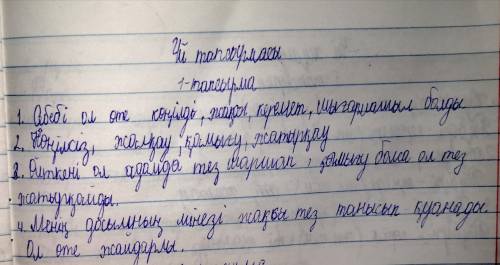 Үй тапсырмасы
1-тапсырма
1. Себебі ол өте көңілді, жақсы, құрмет, шығармашыл болды
2. Көңілсіз, жалқау, қамығу, жатырқау
3. Өйткені ол адамда тез шаршап, қамығу болса ол тез
жатырқайды.
4. Менің досымның мінезі жақсы тез танысып қуанады.
Ол өте жайдарлы.